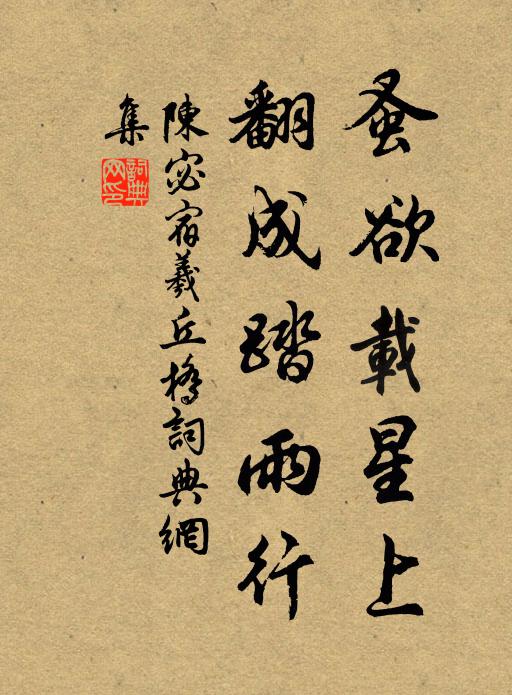 蚤欲載星上
翻成踏雨行
陳宓宿羲丘橋詞典網
集
詞典网印